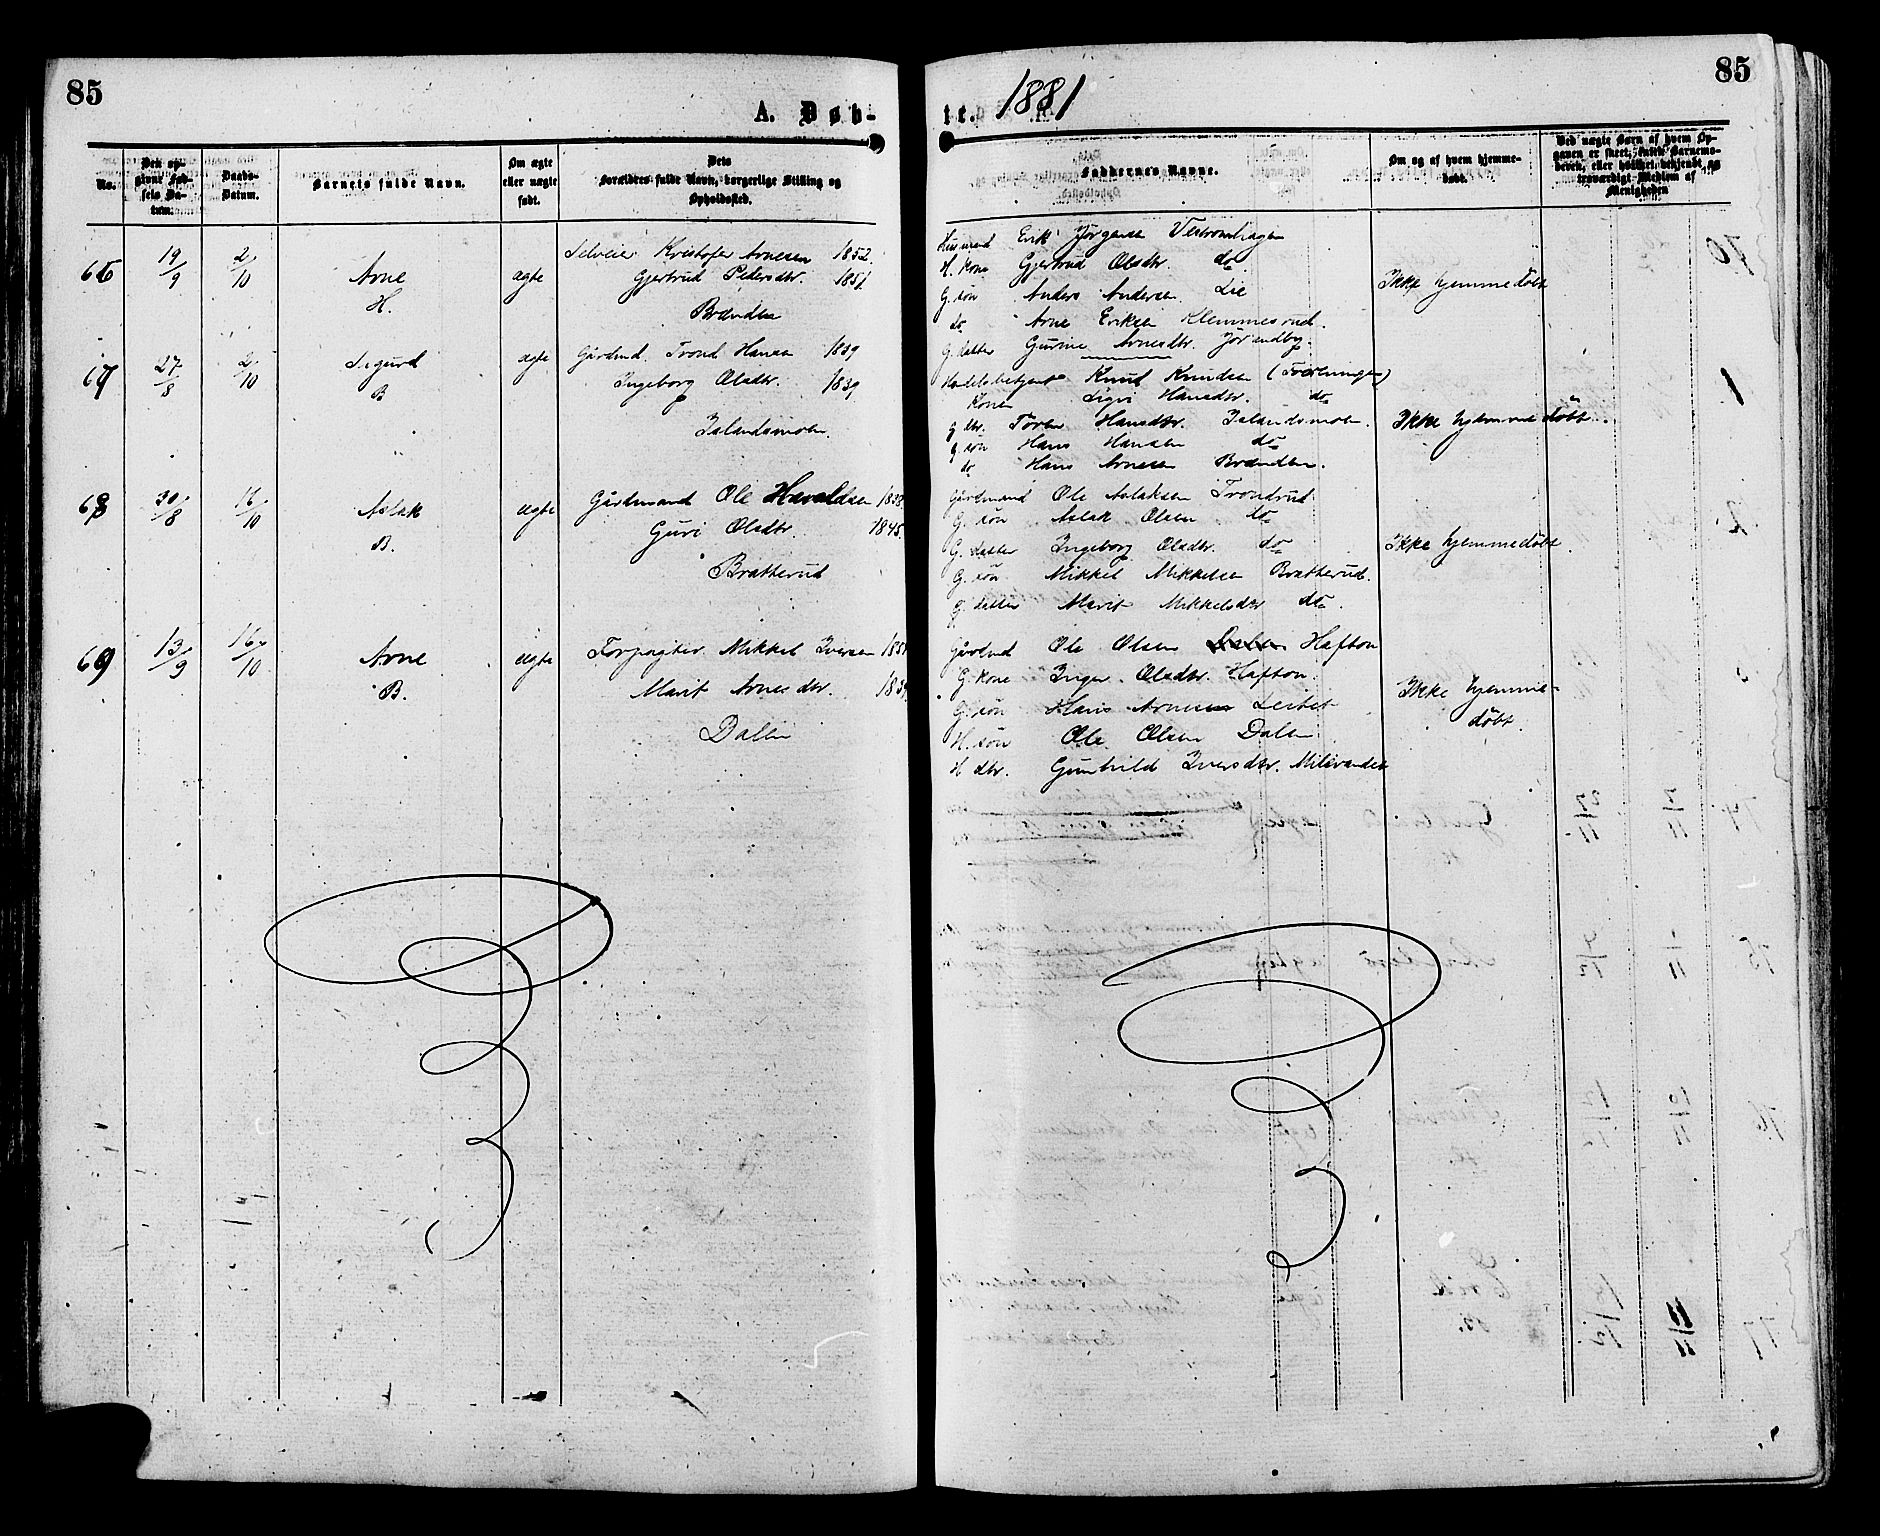 85
A. Døb-
No.
Den opgivne Fødsels Datum.
Daabs-Datum.
Barnets fulde Navn.
Om ægte eller uægte født.
Dets Forældres fulde Navn, borgerlige Stilling og Opholdssted.
66
19/9
2/10
Arne
H.
ægte
Selveier Kristofer Arnesen 1852.
Gjertrud Pedersdtr. 1851
Brænden
67
27/8
2/10
Sigurd
B
ægte
Gårdmd. Trond Hansen 1839
Ingeborg Olsdtr. 1839
Islandsmoen.
68
30/8
16/10
Aslak
B.
ægte
Gårdmand Ole Haraldsen 1838
Guri Olsdtr. 1845.
Bratterud
69
13/9
16/10
Arne
B.
ægte
Forpagter Mikkel Iversen 1851
Marit Arnesdtr. 1839
Dalen
85
te. 1881
Faddernes Navne.
Om og af hvem hjemmedøbt.
Ved uægte Børn af hvem Opgaven er skeet, enten Barnemoderen, eller hvilket bekjendt og troværdigt Medlem af Menigheden
Husmand Erik Jørgensen Vestromhagen
H. kone Gjertrud Olsdtr. do
G. søn Anders Andersen Lie
do Arne Eriksen Klemmesrud.
G. datter Gurine Arnesdtr. Jørandby.
Ikke hjemmedøbt
Handelsbetjent Knud Knudsen (Foreningen)
Kone Sigri Hansdtr. do
g. dtr. Toren Hansdtr. Islandsmoen.
g. søn Hans Hansen do
do Hans Arnesen Brænden.
Ikke hjemmedøbt.
Gårdmand Ole Aslaksen Trondrud
G. søn Aslak Olsen do
G. datter Ingeborg Olsdtr. do
G. søn Mikkel Mikkelsen Bratterud.
G. datter Marit Mikkelsdtr do.
Ikke hjemmedøbt.
Gårdmd Ole Olsen Hafton
G. kone Inger Olsdtr. Hafton.
G. søn Hans Arnesen
H. søn Ole Olsen Dalen
H dtr. Gunhild Iversdtr.
Ikke hjemme-
døbt.